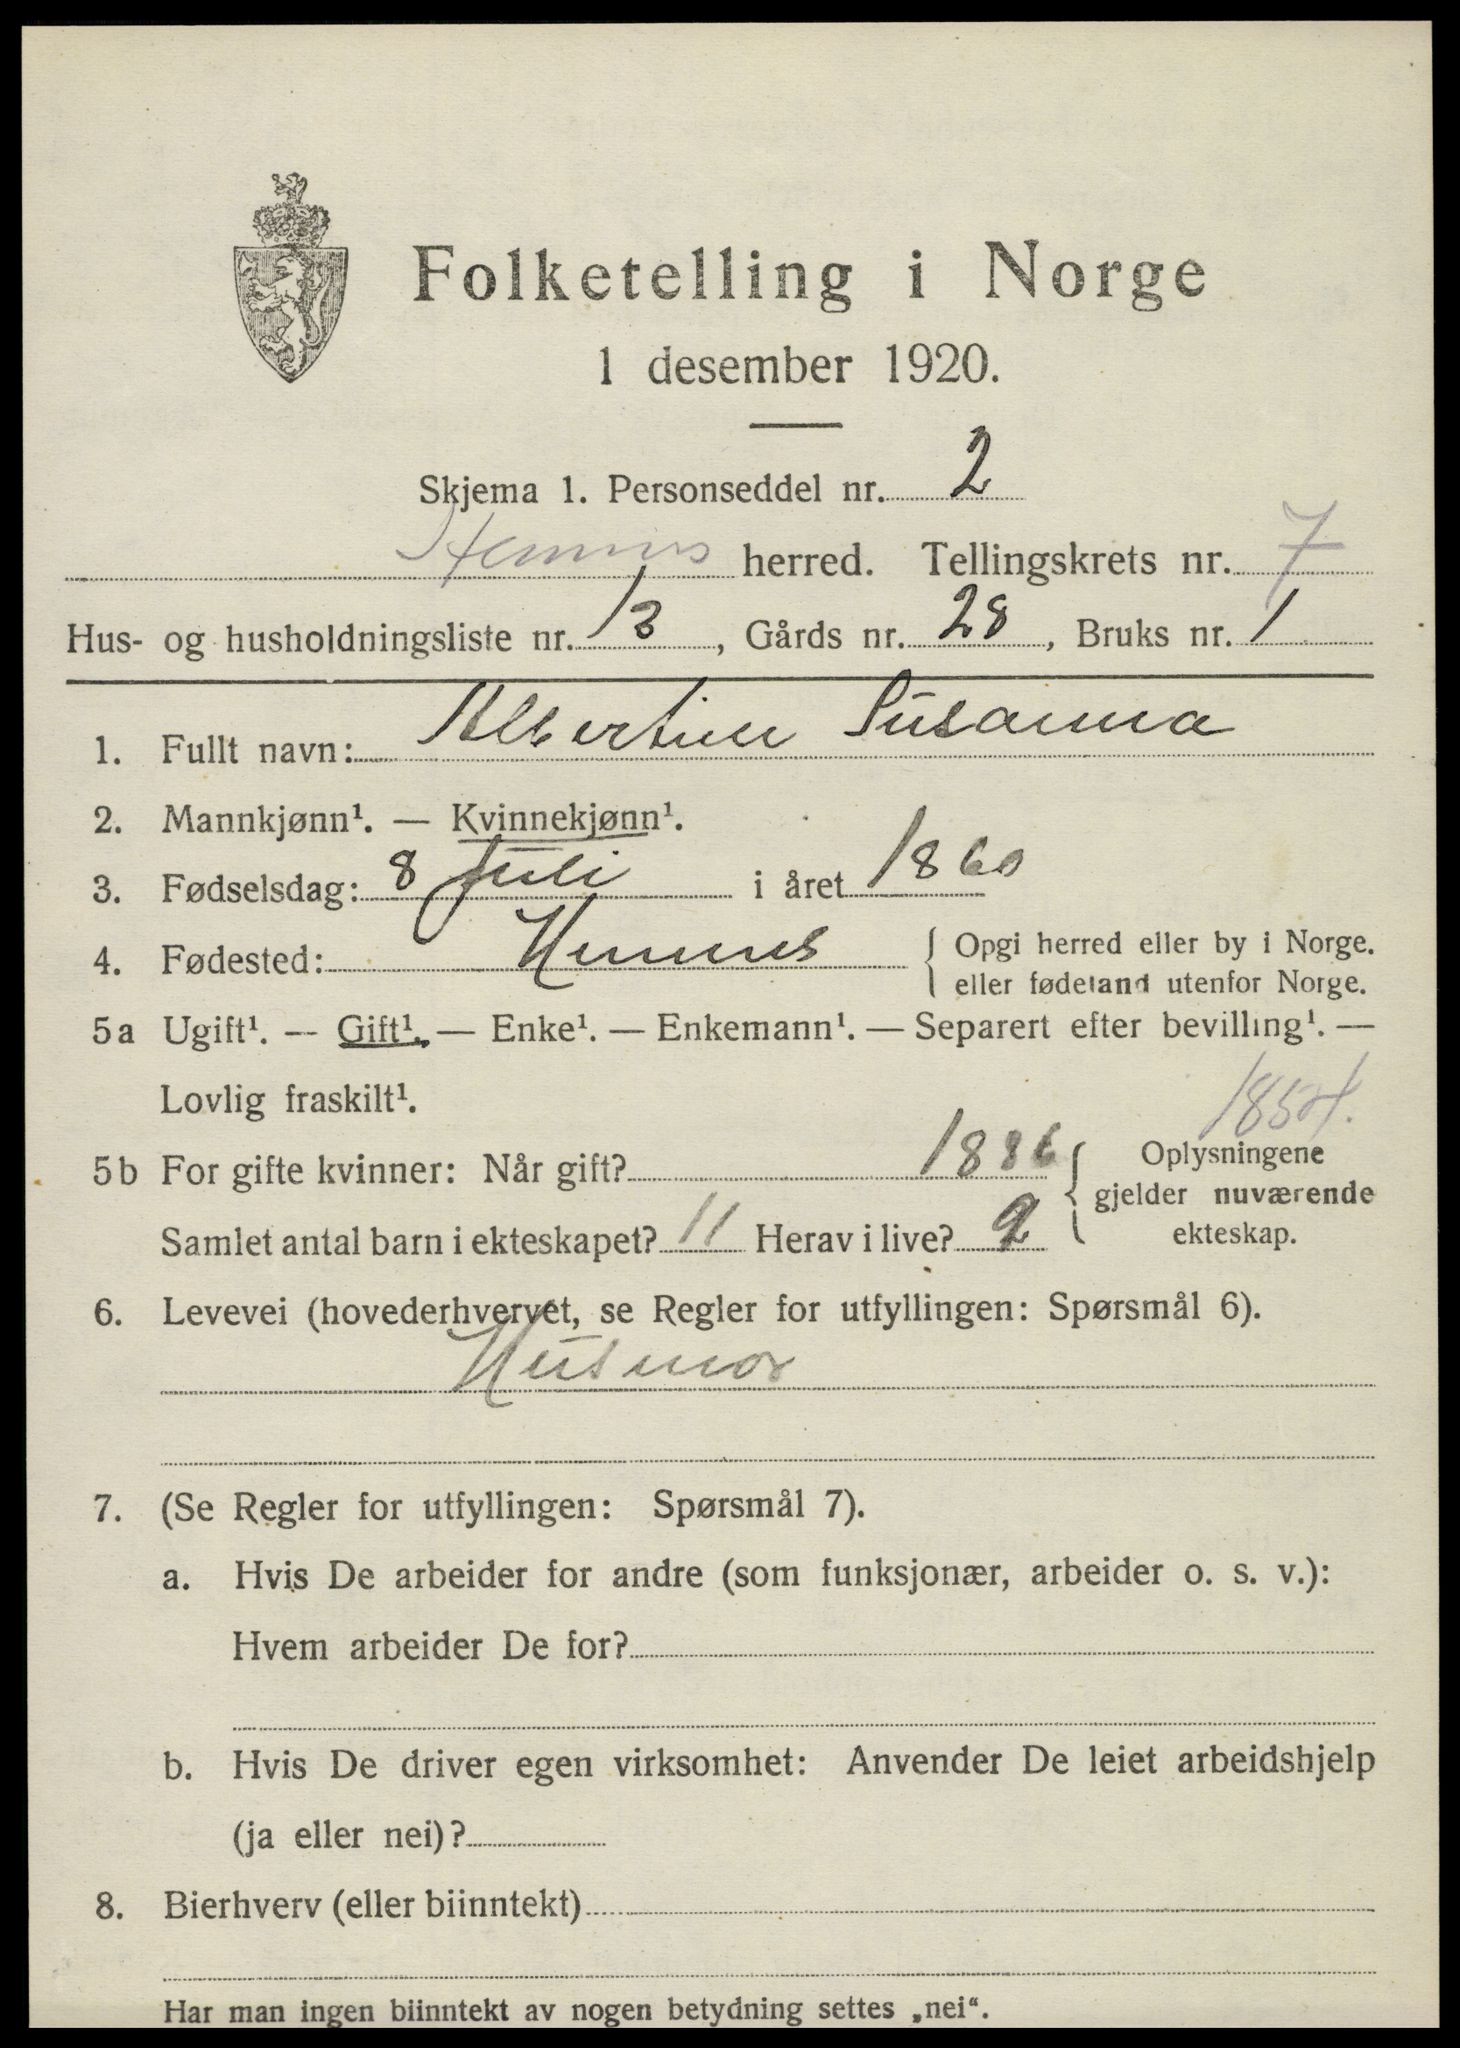 Folketelling i Norge
1 desember 1920.
Skjema 1. Personseddel nr. 2
Hemnes herred. Tellingskrets nr. 7
Hus- og husholdningsliste nr. 13, Gårds nr. 28, Bruks nr. 1
1. Fullt navn: Albertine Susanna
2. Mannkjønn¹. — Kvinnekjønn¹.
3. Fødselsdag: 8 juli i året 1860
4. Fødested: Hemnes { Opgi herred eller by i Norge.
eller fødeland utenfor Norge.
5a Ugift¹. — Gift¹. — Enke¹. — Enkemann¹. — Separert efter bevilling¹. —
Lovlig fraskilt¹.
5b For gifte kvinner: Når gift? 1886 { Oplysningene
gjelder nuværende
Samlet antal barn i ekteskapet? 11 Herav i live? 9 ekteskap.
6. Levevei (hovederhvervet, se Regler for utfyllingen: Spørsmål 6).
Husmor
7. (Se Regler for utfyllingen: Spørsmål 7).
a. Hvis De arbeider for andre (som funksjonær, arbeider o. s. v.):
Hvem arbeider De for?
b. Hvis De driver egen virksomhet: Anvender De leiet arbeidshjelp
(ja eller nei)?
8. Bierhverv (eller biinntekt)
Har man ingen biinntekt av nogen betydning settes „nei“.